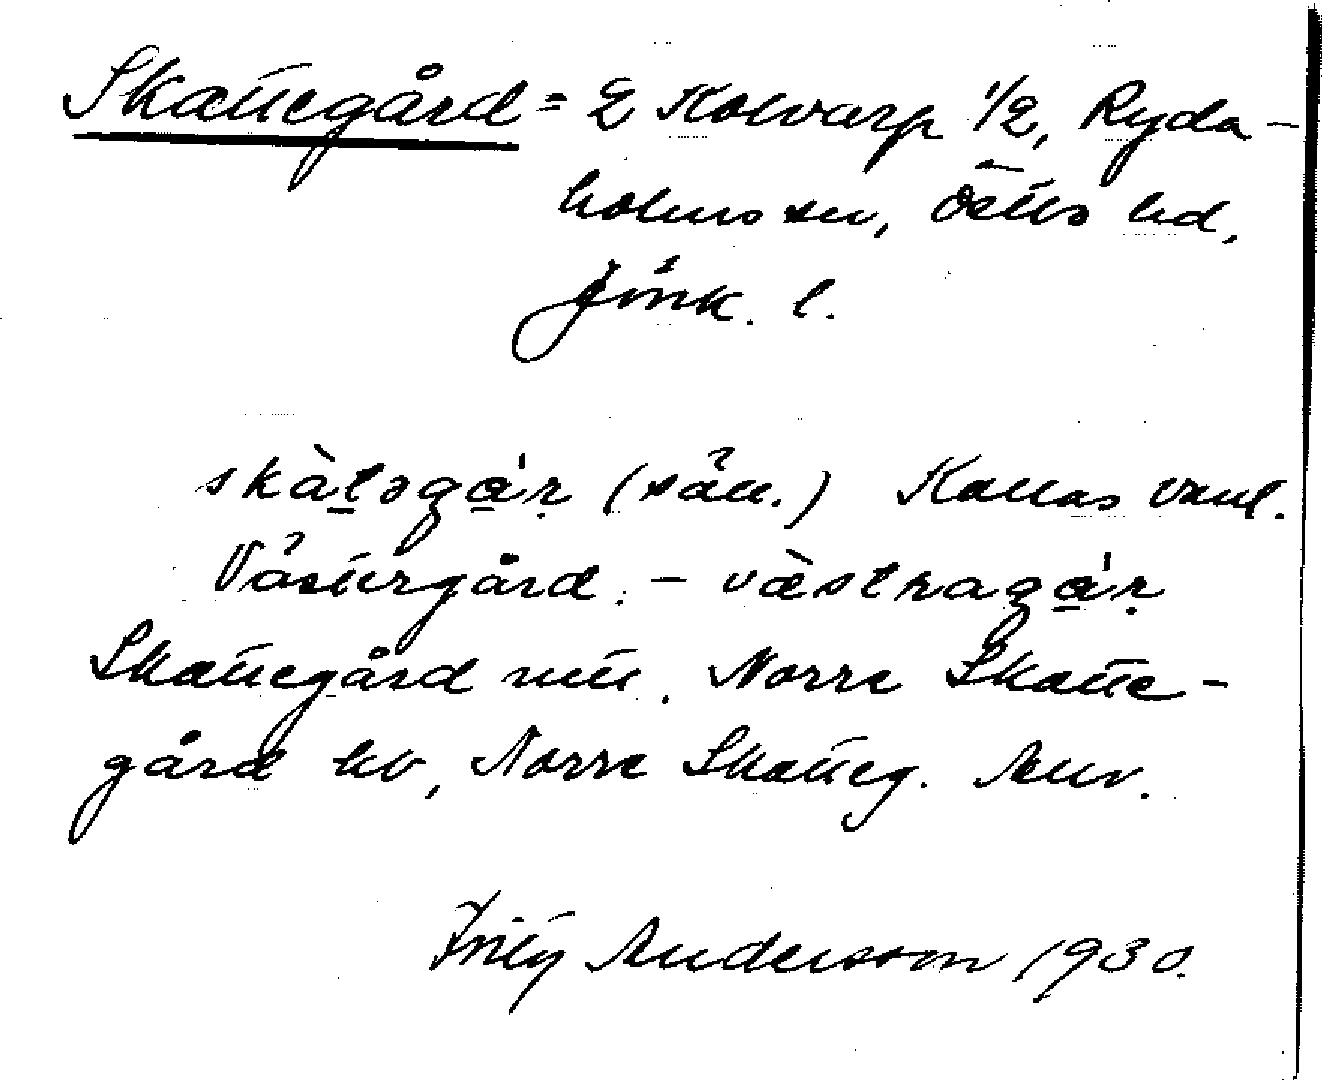 Skattegård = 2 Kolvarp 1/2, Ryda-
holms sn, Östbo hd,
Jönk. l.
skàtəgá̱r̥ (sän.) Kallas vanl.
Västergård. - væ̀straga̱'r̥
Skattegård Norre Skatte-
gård hv, Norre Skatteg.
Fritz Andersson 1930.